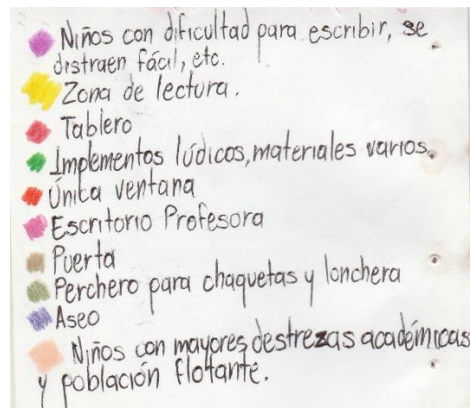 Niños con dificultad para escribir, se
distraen fácil, etc.
Zona de lectura.
Tablero
Implementos lúdicos, materiales varios.
Única ventana
Escritorio Profesora
Puerta
Perchero para chaquetas y lonchera
Aseo
Niños con mayores destrezas académicas
y población flotante.